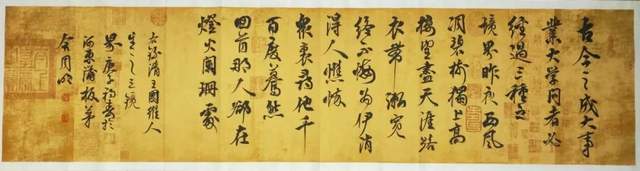 古今之成大事
業大學問者必
經過三種之
境界昨夜西風
凋碧樹獨上高
樓望盡天涯路
衣帶漸寬
終不悔為伊消
得人憔悴
眾裏尋他千
百度驀然
回首那人卻在
燈火闌珊處
右錄清王國維人
生之三境
界庚子書於
河東蒲板